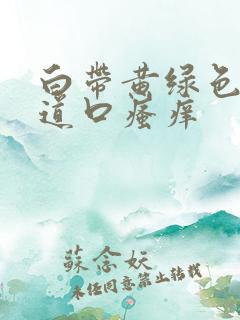 白带黄绿色
道口瘙痒
蘇念妖
未经同意禁止转载